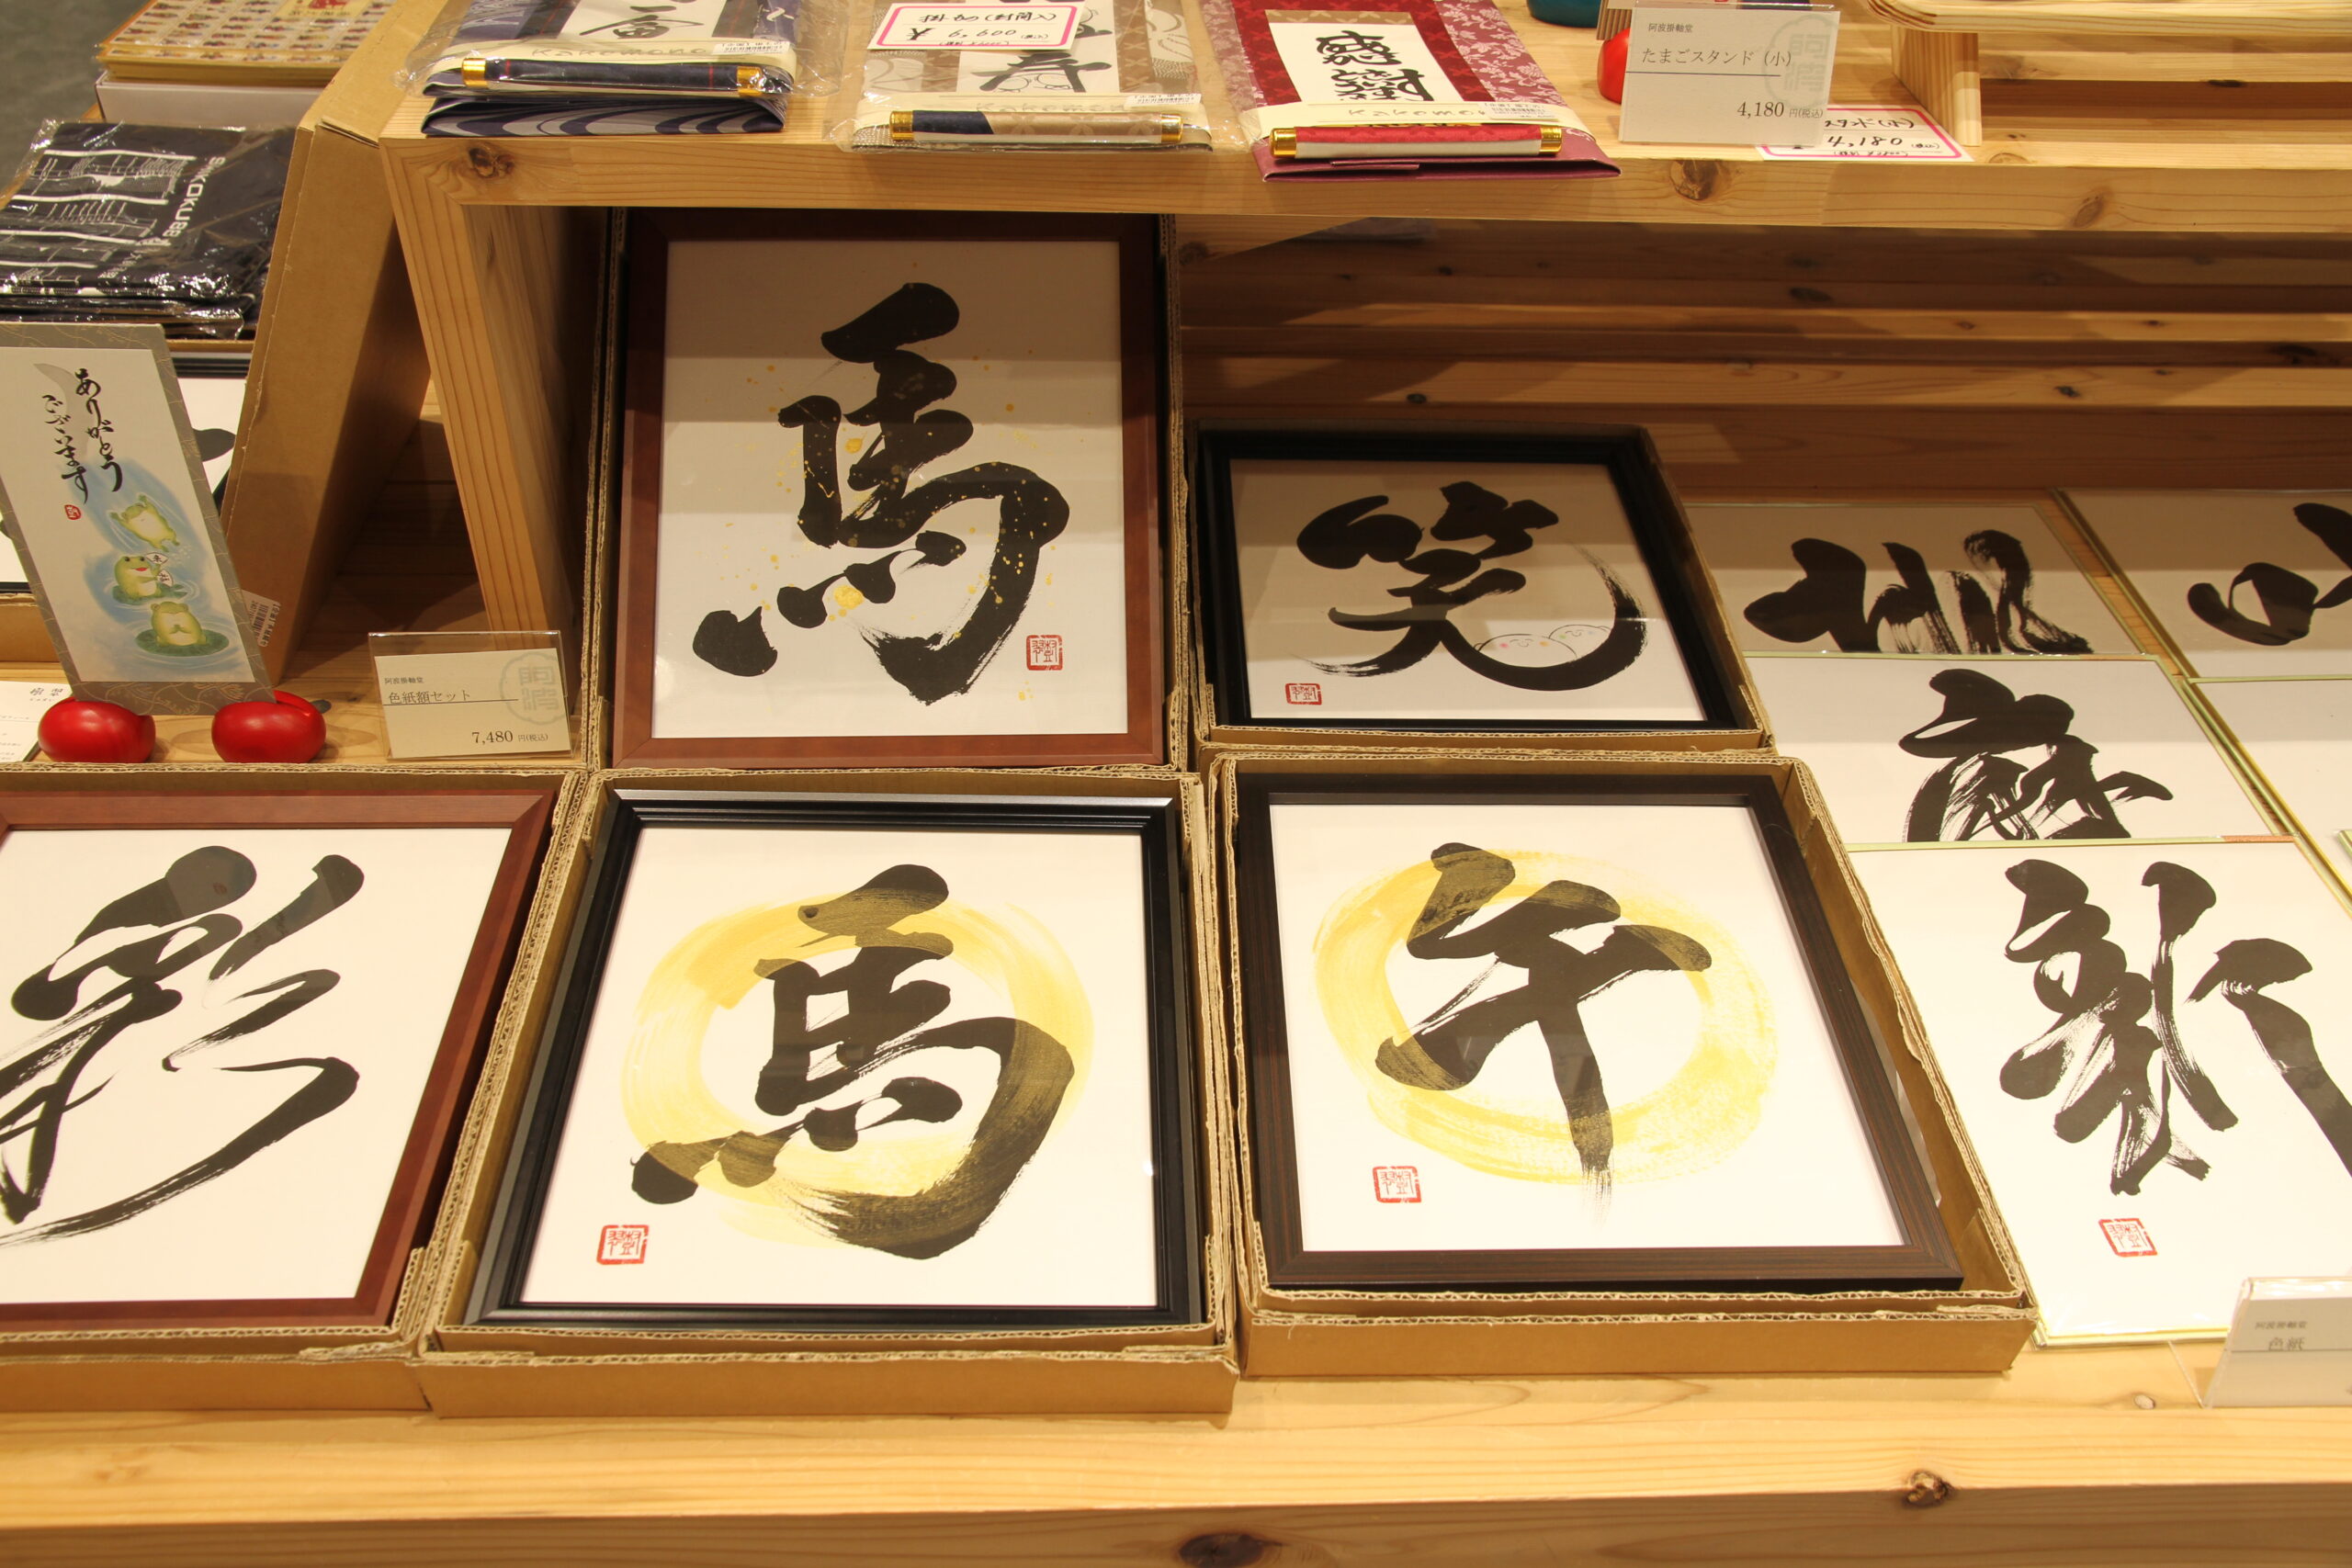 掛軸(封筒入)
¥6,600
寿
感謝
阿波掛軸堂
たまごスタンド(小)
4,180 円(税込)
4,180
SHIKOKU
ありがとう
ございます
阿波掛軸堂
色紙額セット
7,480 円(税込)
馬
笑
彩
馬
午
新
阿波掛軸堂
色紙